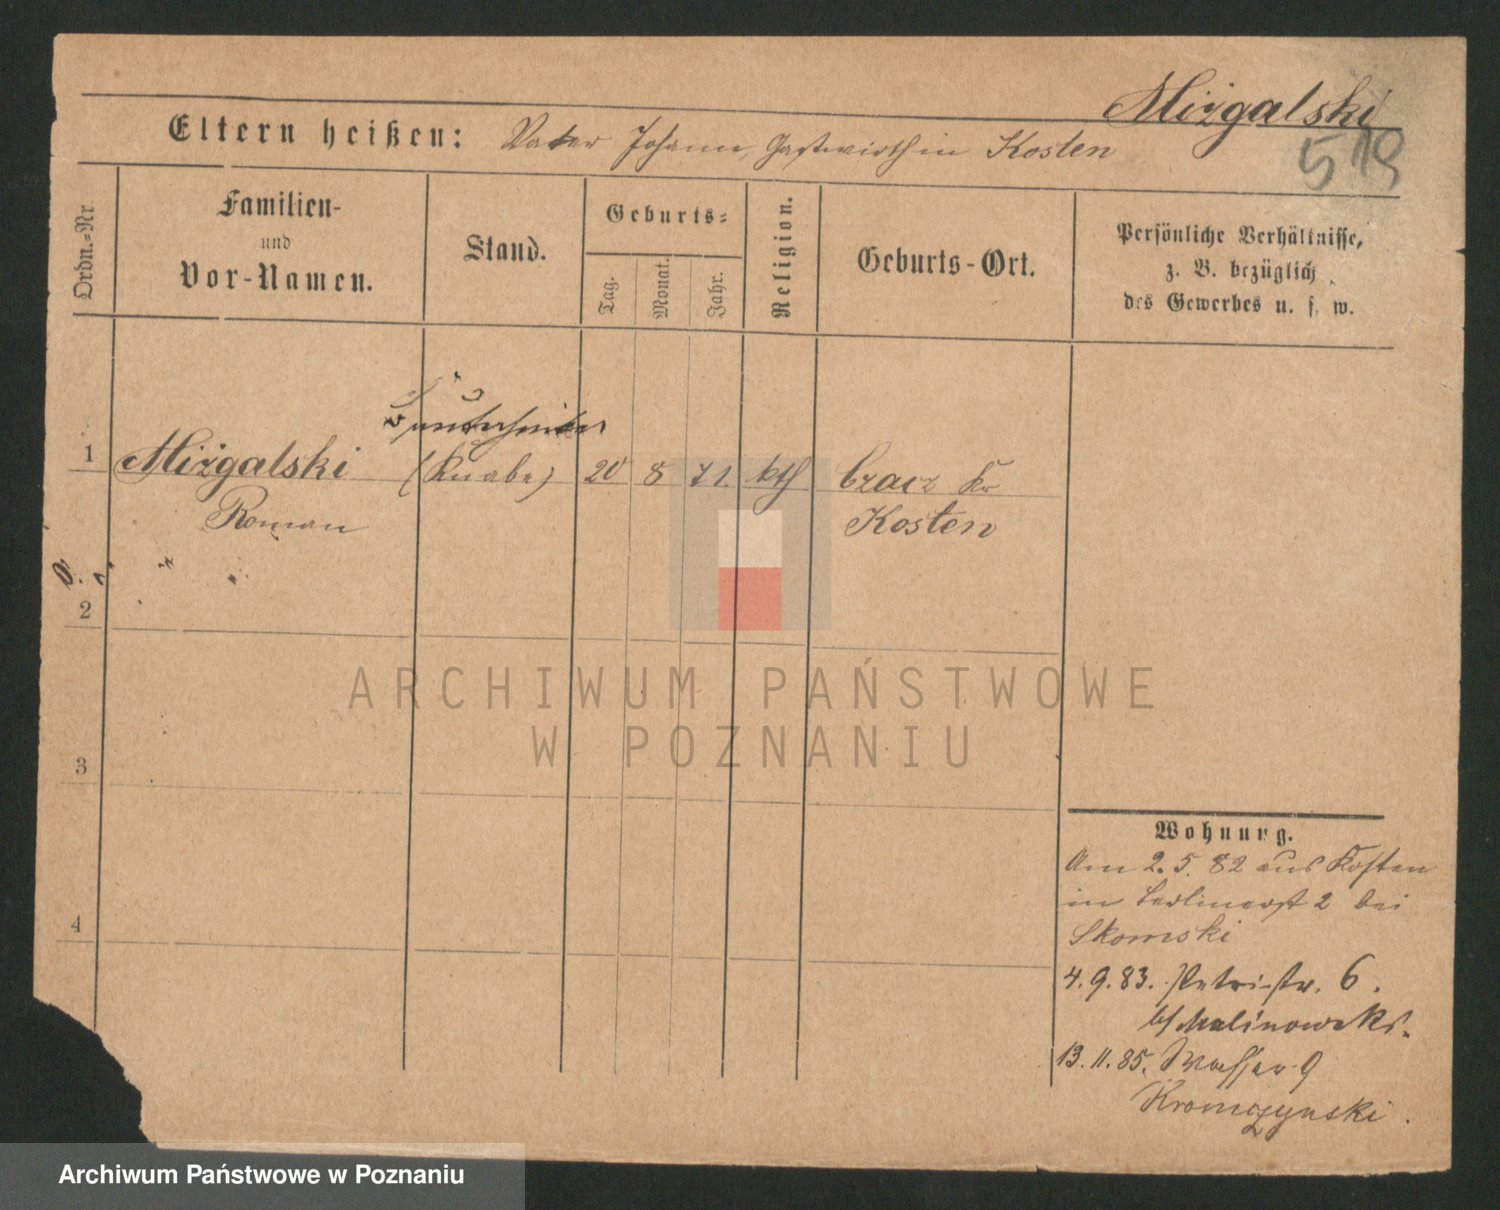 Miżgalski
519
Eltern heißen: Vater Johann, Gastwirth in Kosten
Ordn.-Nr.
Familien-
und
Vor-Namen.
Stand.
Geburts-
Tag.
Monat.
Jahr.
Religion.
Geburts-Ort.
Persönliche Verhältnisse,
z. B. bezüglich
des Gewerbes u. s. w.
1 Miżgalski (Knabe) 20 8 71. kth Czacz Kr
Roman Kosten
2
3
4
Wohnung.
Am 2.5.82 aus Kosten
in Berlinerst 2 bei
Skomski
4.9.83. Petri-str. 6.
bf Malinowski.
13.11.85. Wasser 9
Kromczynski.
ARCHIWUM PAŃSTWOWE
W POZNANIU
Archiwum Państwowe w Poznaniu